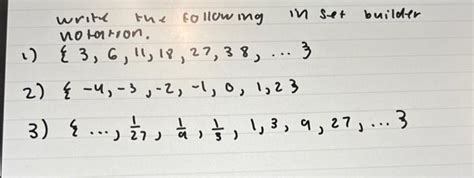 write the following in set builder
notation.
1) { 3, 6, 11, 18, 27, 38, ... }
2) { -4, -3, -2, -1, 0, 1, 2 }
3) { ..., 1/27, 1/9, 1/3, 1, 3, 9, 27, ... }